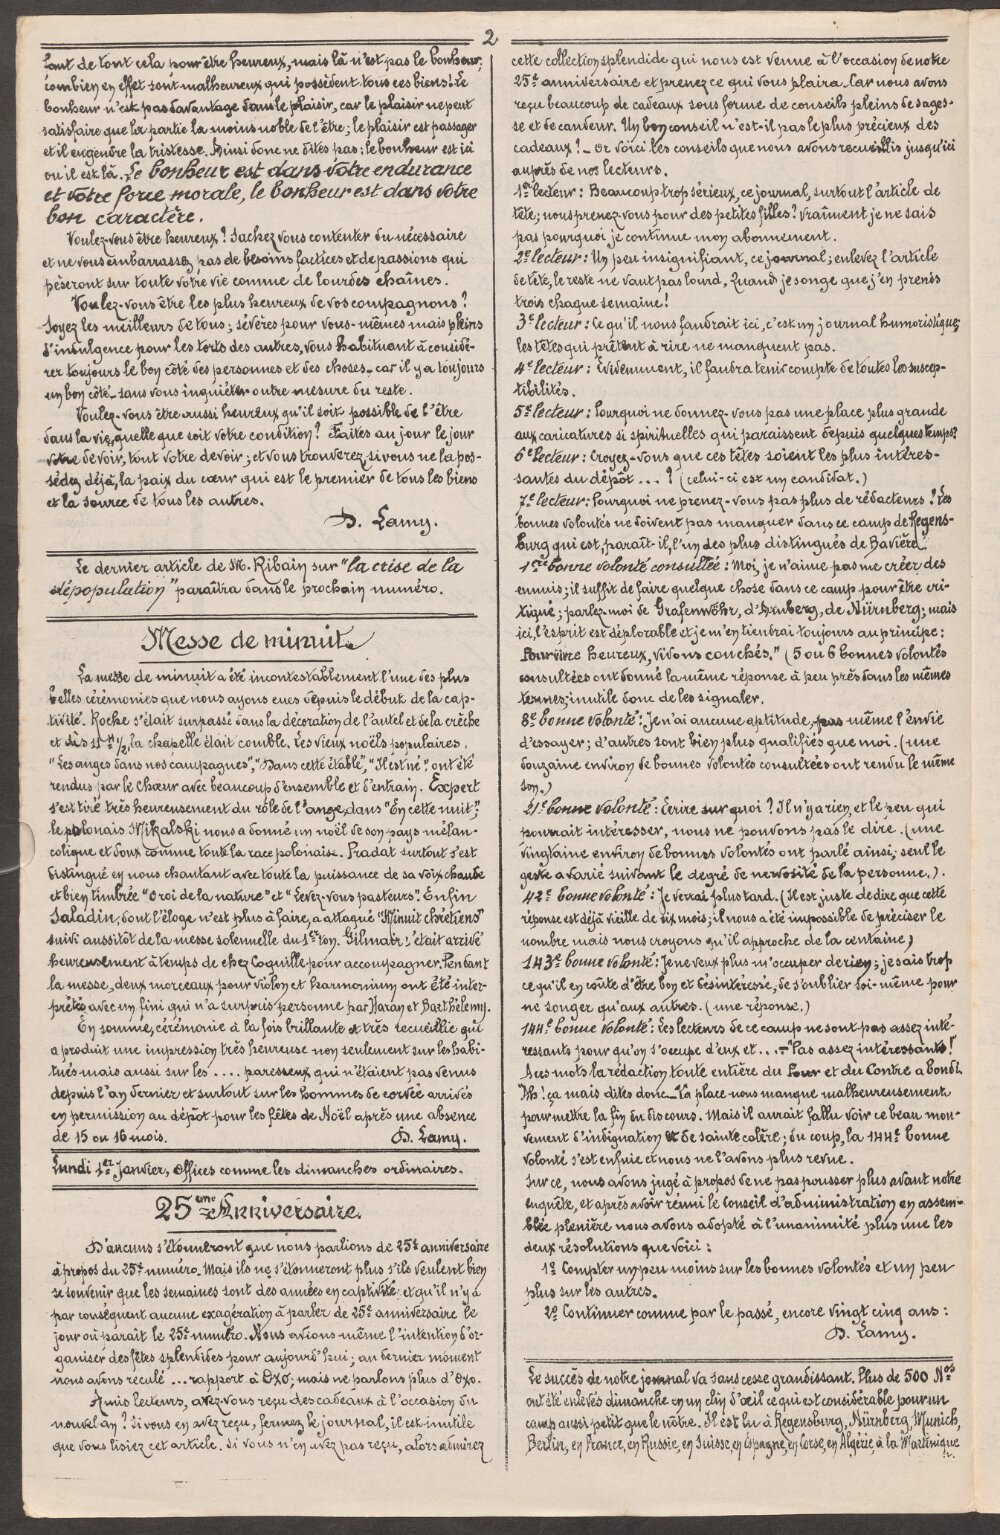 2
faut de tout cela pour être heureux, mais là n'est pas le bonheur;
combien en effet sont malheureux qui possèdent tous ces biens! Le
bonheur n'est pas davantage dans le plaisir, car le plaisir ne peut
satisfaire que la partie la moins noble de l'être; le plaisir est passager
et il engendre la tristesse. Ainsi donc ne dites pas: le bonheur est ici
ou il est là. Le bonheur est dans votre endurance
et votre force morale, le bonheur est dans votre
bon caractère.
Voulez-vous être heureux? Sachez vous contenter du nécessaire
et ne vous embarrassez pas de besoins factices et de passions qui
pèseront sur toute votre vie comme de lourdes chaînes.
Voulez-vous être les plus heureux de vos compagnons?
Soyez les meilleurs de tous; sévères pour vous-mêmes mais pleins
d'indulgence pour les torts des autres, vous habituant à considé-
rer toujours le bon côté des personnes et des choses - car il y a toujours
un bon côté - sans vous inquiéter outre mesure du reste.
Voulez-vous être aussi heureux qu'il soit possible de l'être
dans la vie, quelle que soit votre condition? Faites au jour le jour
votre devoir, tout votre devoir; et vous trouverez, si vous ne la pos-
sédez déjà, la paix du cœur qui est le premier de tous les biens
et la source de tous les autres.
D. Lamy.
Le dernier article de M. Ribain sur "la crise de la
dépopulation" paraîtra dans le prochain numéro.
Messe de minuit
La messe de minuit a été incontestablement l'une des plus
belles cérémonies que nous ayons eues depuis le début de la cap-
tivité. Roche s'était surpassé dans la décoration de l'autel et de la crèche
et dès 11 h 1/2, la chapelle était comble. Les vieux noëls populaires,
"Les anges dans nos campagnes", "Dans cette étable", "Il est né" ont été
rendus par le chœur avec beaucoup d'ensemble et d'entrain. Expert
s'est tiré très heureusement du rôle de l'ange dans "En cette nuit";
le polonais Mikalski nous a donné un noël de son pays mélan-
colique et doux comme toute la race polonaise. Pradat surtout s'est
distingué en nous chantant avec toute la puissance de sa voix chaude
et bien timbrée "O roi de la nature" et "Levez-vous pasteurs". Enfin
Saladin, dont l'éloge n'est plus à faire, a attaqué "Minuit chrétiens"
suivi aussitôt de la messe solennelle du 1er ton. Gilmair s'était arrivé
heureusement à temps de chez Coquille pour accompagner. Pendant
la messe, deux morceaux pour violon et harmonium ont été inter-
prétés avec un fini qui n'a surpris personne par Haran et Barthélemy.
En somme, cérémonie à la fois brillante et très recueillie qui
a produit une impression très heureuse non seulement sur les habi-
tués mais aussi sur les .... paresseux qui n'étaient pas venus
depuis l'an dernier et surtout sur les hommes de corvée arrivés
en permission au dépôt pour les fêtes de Noël après une absence
de 15 ou 16 mois. D. Lamy.
Lundi 1er Janvier, Offices comme les dimanches ordinaires.
25ème Anniversaire
D'aucuns s'étonneront que nous parlions de 25e anniversaire
à propos du 25e numéro. Mais ils ne s'étonneront plus s'ils veulent bien
se souvenir que les semaines sont des années en captivité et qu'il n'y a
par conséquent aucune exagération à parler de 25e anniversaire le
jour où paraît le 25e numéro. Nous avions même l'intention d'or-
ganiser des fêtes splendides pour aujourd'hui; au dernier moment
nous avons reculé ... rapport à Oxo; mais ne parlons plus d'Oxo.
Amis lecteurs, avez-vous reçu des cadeaux à l'occasion du
nouvel an? Si vous en avez reçu, fermez le journal, il est inutile
que vous lisiez cet article. Si vous n'en avez pas reçu, alors admirez
cette collection splendide qui nous est venue à l'occasion de notre
25e anniversaire et prenez ce qui vous plaira. Car nous avons
reçu beaucoup de cadeaux sous forme de conseils pleins de sages-
se et de candeur. Un bon conseil n'est-il pas le plus précieux des
cadeaux? - Or voici les conseils que nous avons recueillis jusqu'ici
auprès de nos lecteurs.
1er lecteur: Beaucoup trop sérieux, ce journal, surtout l'article de
tête; nous prenez-vous pour des petites filles? Vraiment je ne sais
pas pourquoi je continue mon abonnement.
2e lecteur: Un peu insignifiant, ce journal; enlevez l'article
de tête, le reste ne vaut pas lourd. Quand je songe que j'en prends
trois chaque semaine!
3e lecteur: Ce qu'il nous faudrait ici, c'est un journal humoristique;
les têtes qui prêtent à rire ne manquent pas.
4e lecteur: Evidemment, il faudra tenir compte de toutes les suscep-
tibilités.
5e lecteur: Pourquoi ne donnez-vous pas une place plus grande
aux caricatures si spirituelles qui paraissent depuis quelques temps?
6e lecteur: Croyez-vous que ces têtes soient les plus intéres-
santes du dépôt ...? (celui-ci est un candidat.)
7e lecteur: Pourquoi ne prenez-vous pas plus de rédacteurs? Les
bonnes volontés ne doivent pas manquer dans ce camp de Regens-
burg qui est, paraît-il, l'un des plus distingués de Bavière.
1ère bonne volonté consultée: Moi, je n'aime pas me créer des
ennuis; il suffit de faire quelque chose dans ce camp pour être cri-
tiqué; parlez-moi de Grafenwöhr, d'Amberg, de Nürnberg; mais
ici, l'esprit est déplorable et je m'en tiendrai toujours au principe:
"Pour vivre heureux, vivons couchés." (5 ou 6 bonnes volontés
consultées ont donné la même réponse à peu près dans les mêmes
termes; inutile donc de les signaler.
8e bonne volonté: Je n'ai aucune aptitude, pas même l'envie
d'essayer; d'autres sont bien plus qualifiés que moi. (une
douzaine environ de bonnes volontés consultées ont rendu le même
son.)
21e bonne volonté: Ecrire sur quoi? Il n'y a rien, et le peu qui
pourrait intéresser, nous ne pouvons pas le dire. (une
vingtaine environ de bonnes volontés ont parlé ainsi; seul le
geste a varié suivant le degré de nervosité de la personne.).
42e bonne volonté: Je verrai plus tard. (Il est juste de dire que cette
réponse est déjà vieille de six mois; il nous a été impossible de préciser le
nombre mais nous croyons qu'il approche de la centaine)
143e bonne volonté: Je ne veux plus m'occuper de rien; je sais trop
ce qu'il en coûte d'être bon et désintéressé, de s'oublier soi-même pour
ne songer qu'aux autres. (une réponse.)
144e bonne volonté: Les lecteurs de ce camp ne sont pas assez inté-
ressants pour qu'on s'occupe d'eux et ... - Pas assez intéressants!
A ces mots la rédaction toute entière du Pour et du Contre a bondi.
Ah! ça mais dites donc - La place nous manque malheureusement
pour mettre la fin du discours. Mais il aurait fallu voir ce beau mou-
vement d'indignation et de sainte colère; du coup, la 144e bonne
volonté s'est enfuie et nous ne l'avons plus revue.
Sur ce, nous avons jugé à propos de ne pas pousser plus avant notre
enquête, et après avoir réuni le Conseil d'administration en assem-
blée plenière nous avons adopté à l'unanimité plus une les
deux résolutions que voici:
1º Compter un peu moins sur les bonnes volontés et un peu
plus sur les autres.
2º Continuer comme par le passé, encore vingt cinq ans:
D. Lamy.
Le succès de notre journal va sans cesse grandissant. Plus de 500 Nos
ont été enlevés dimanche en un clin d'œil ce qui est considérable pour un
camp aussi petit que le nôtre. Il est lu à Regensburg, Nürnberg, Munich,
Berlin, en France, en Russie, en Suisse, en Espagne, en Corse, en Algérie, à la Martinique